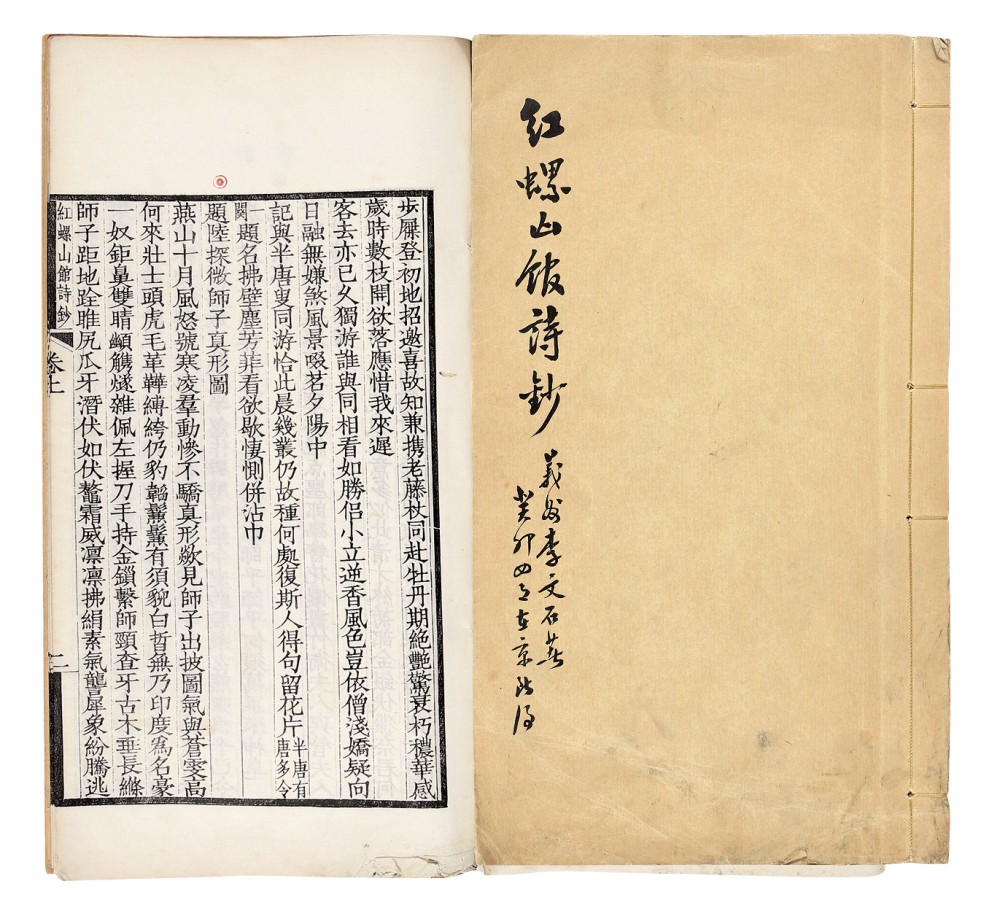 紅螺山館詩鈔
義州李文石著
癸卯四月在京所得
步屧登初地招邀喜故知兼携老藤杖同赴牡丹期絕艷驚衰朽穠華感
歲時數枝開欲落應惜我來遲
客去亦已久獨游誰與同相看如勝侶小立逆香風色豈依僧淺嬌疑向
日融無嫌煞風景啜茗夕陽中
記與半唐叟同游恰此晨幾叢仍故種何處復斯人得句留花片半唐有唐多令
一闋題名拂壁塵芳菲看欲歇悽惻併沾巾
題陸探微師子真形圖
燕山十月風怒號寒凌羣動慘不驕真形歘見師子出披圖氣與蒼雯高
何來壯士頭虎毛革鞾縛絝仍豹韜鬣鬣有須貌白晳無乃印度爲名豪
一奴鉅鼻雙睛顱觿燧雜佩左握刀手持金鎖繫師頸查牙古木垂長絛
師子距地跧睢尻瓜牙潛伏如伏鼇霜威凛凛拂絹素氣讋犀象紛騰逃
紅螺山館詩鈔 卷上 二